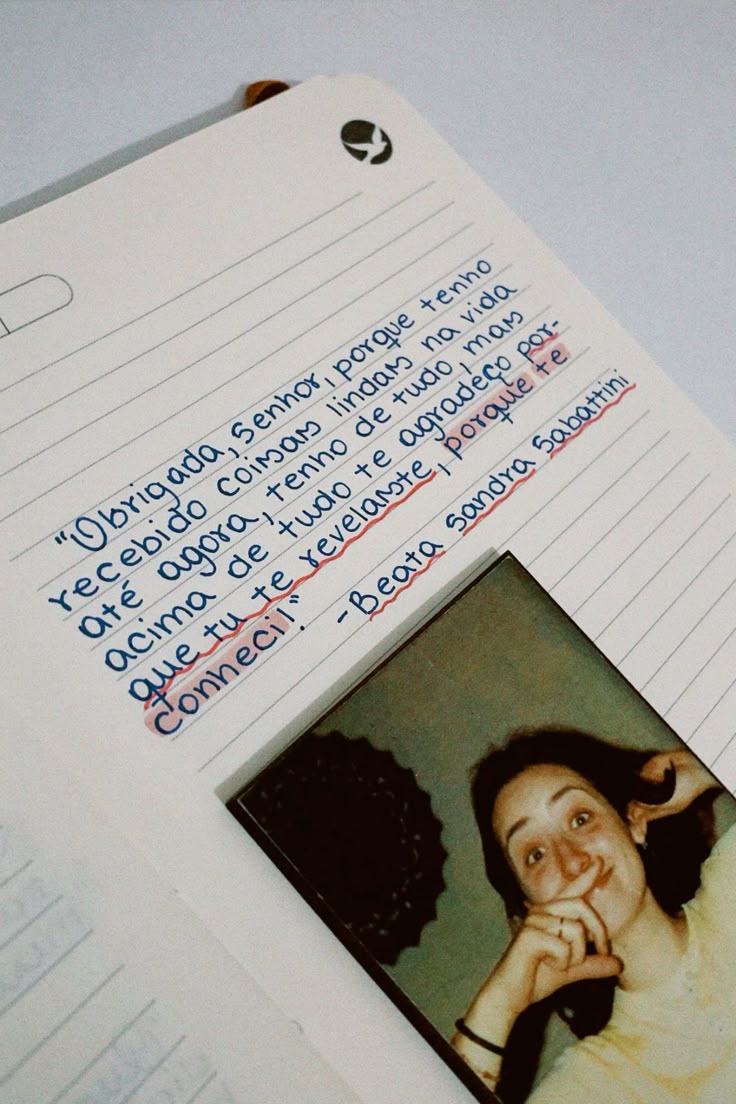 "Obrigada, Senhor, porque tenho
recebido coisas lindas na vida
até agora, tenho de tudo, mas
acima de tudo te agradeço por-
que tu te revelaste, porque te
conheci!"
-Beata Sandra Sabattini